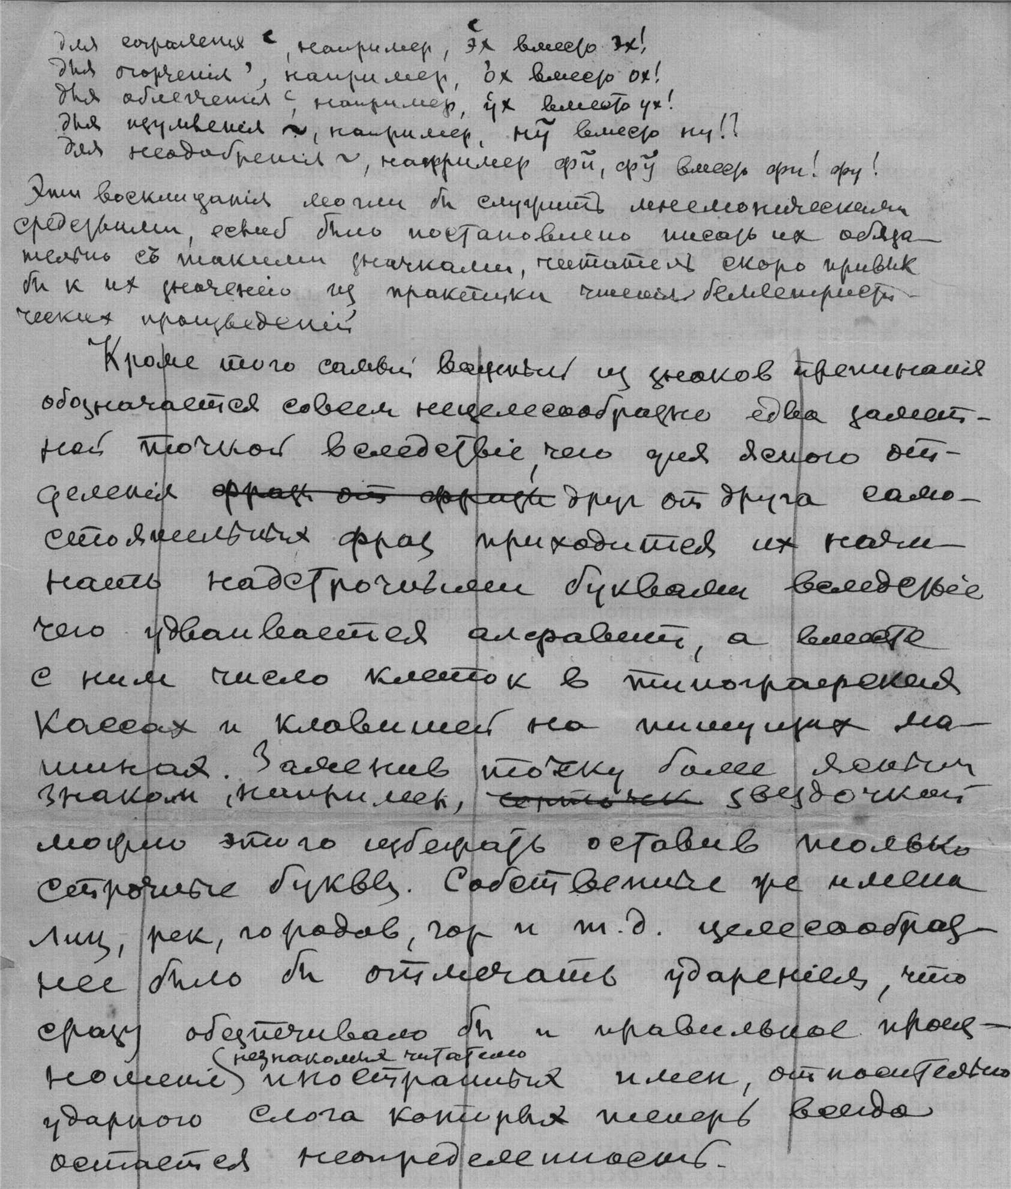 для сожаления ʿ, например, э̒х вместо эх!
для огорченія ʾ, например, о̓х вместо ох!
для облегченія ʿ, например, у̒х вместо ух!
для изумленія ~, например, ну̃ вместо ну!?
для неодобренія ~, например фи̃, фу̃ вместо фи! фу!
Эти восклицанія могли бы служить мнемоническими
средствами, еслиб было постановлено писать их обяза-
тельно съ такими значками, читатель скоро привык
бы к их значенію из практики чтенія беллетристи-
ческих произведеній
Кроме того самый важный из знаков препинания
обозначается совсем нецелесообразно едва замет-
ной точкой вследствіе, чего для ясного от-
деленія фраз от фразы друг от друга само-
стоятельных фраз приходится их начи-
нать надстрочными буквами вследствіе
чего удваивается алфавит, а вместе
с ним число клеток в типографских
кассах и клавишей на пишущих ма-
шинах. Заменив точку более ясным
знаком, например, звездочкой
можно этого избежать оставив только
строчные буквы. Собственные же имена
лиц, рек, городов, гор и т.д. целесообраз-
нее было бы отмечать ударенiем, что
сразу обезпечивало бы и правильное произ-
ношеніе (незнакомых читателю
иностранных имен, относительно
ударного слога которых теперь всегда
остается неопределенность.